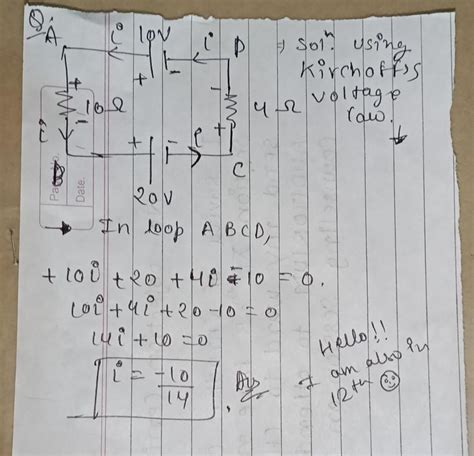 Q. A i 10V i D
+ -
+ 10Ω - - 4Ω +
i
+ - i C
20V
Page
Date.
⇒ Soln. using
Kirchoff's
voltage
law.
↓
→ In loop A B C D,
+10i + 20 + 4i - 10 = 0.
10i + 4i + 20 - 10 = 0
14i + 10 = 0
i = -10/14 . Ans
Hello!!
I am also in
12th ☺